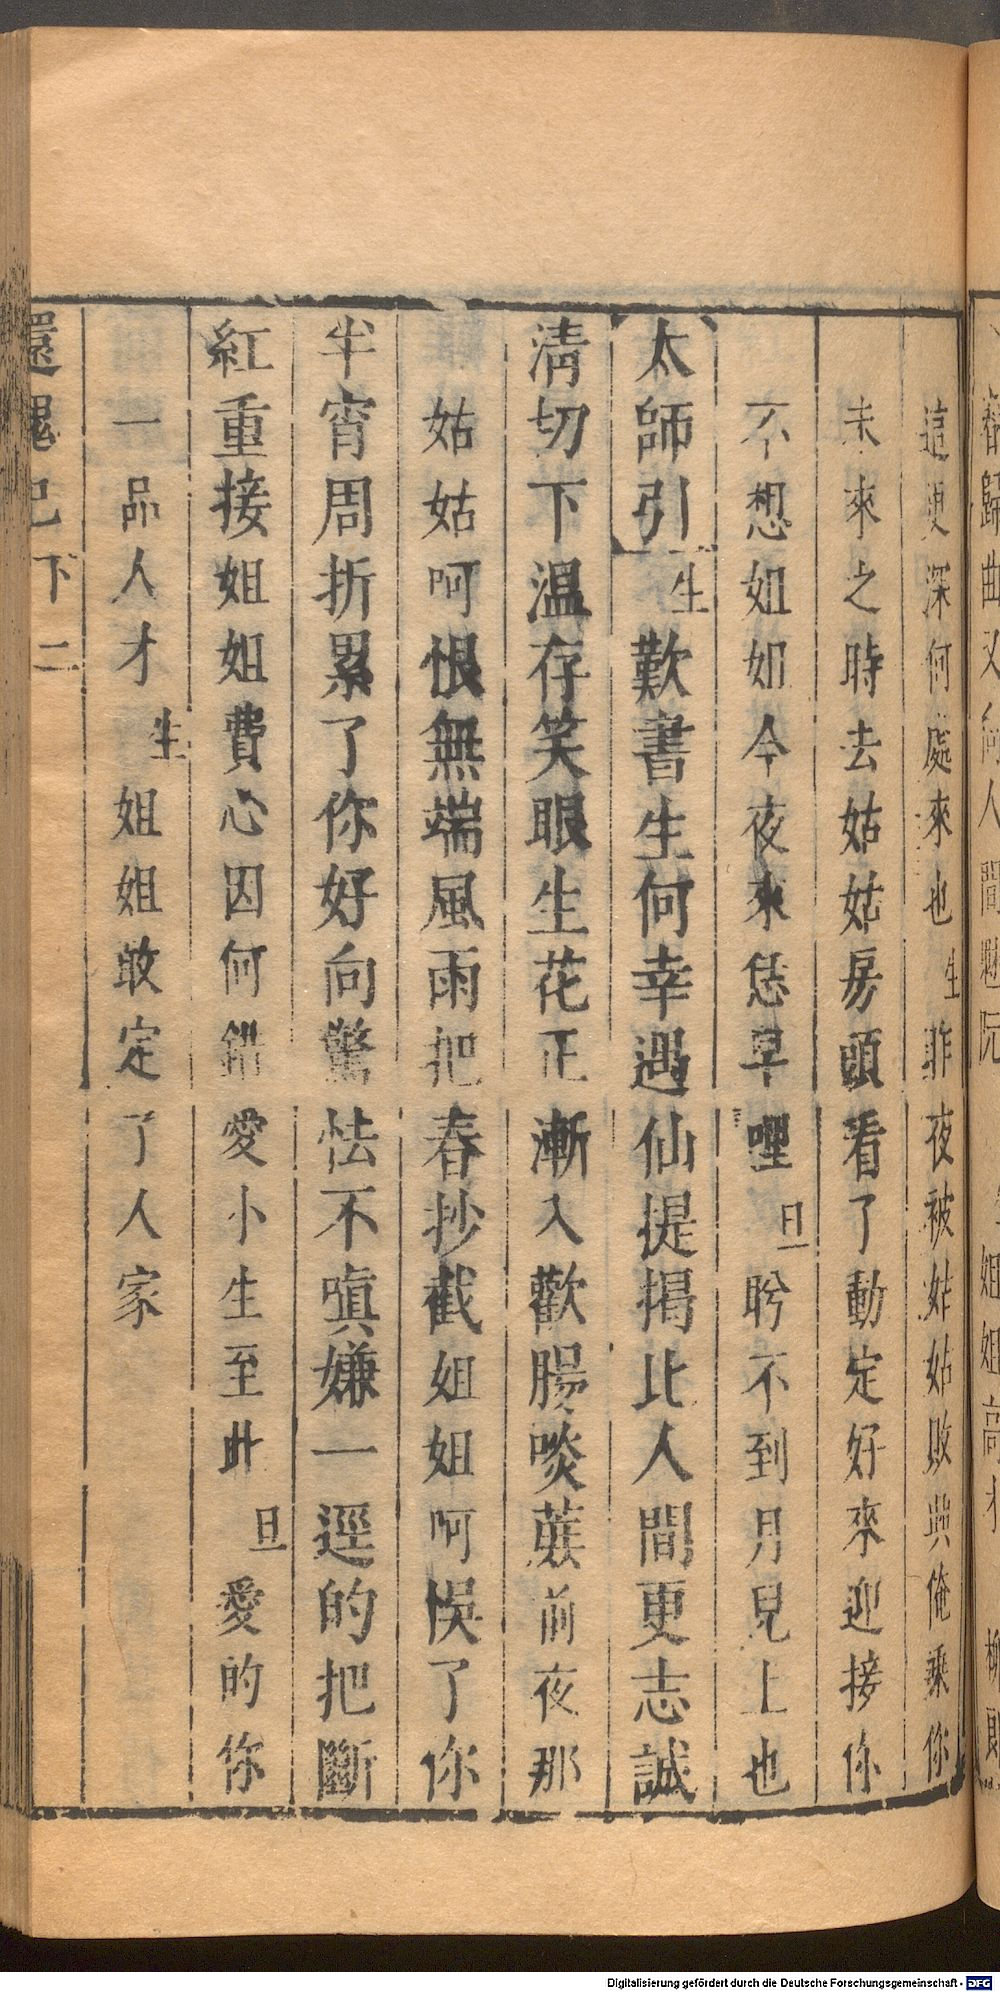 這更深何處來也生昨夜被姑姑敗興俺乘你
未來之時去姑姑房頭看了動定好來迎接你
不想姐姐今夜來恁早哩旦盼不到月兒上也
太師引生歎書生何幸遇仙提揭比人間更志誠
清切下溫存笑眼生花正漸入歡腸啖蔗前夜那
姑姑呵恨無端風雨把春抄截姐姐呵悞了你
半宵周折累了你好向驚怯不嗔嫌一逕的把斷
紅重接姐姐費心因何錯愛小生至此旦愛的你
一品人才生姐姐敢定了人家
還魂記下二
Digitalisierung gefördert durch die Deutsche Forschungsgemeinschaft - DFG